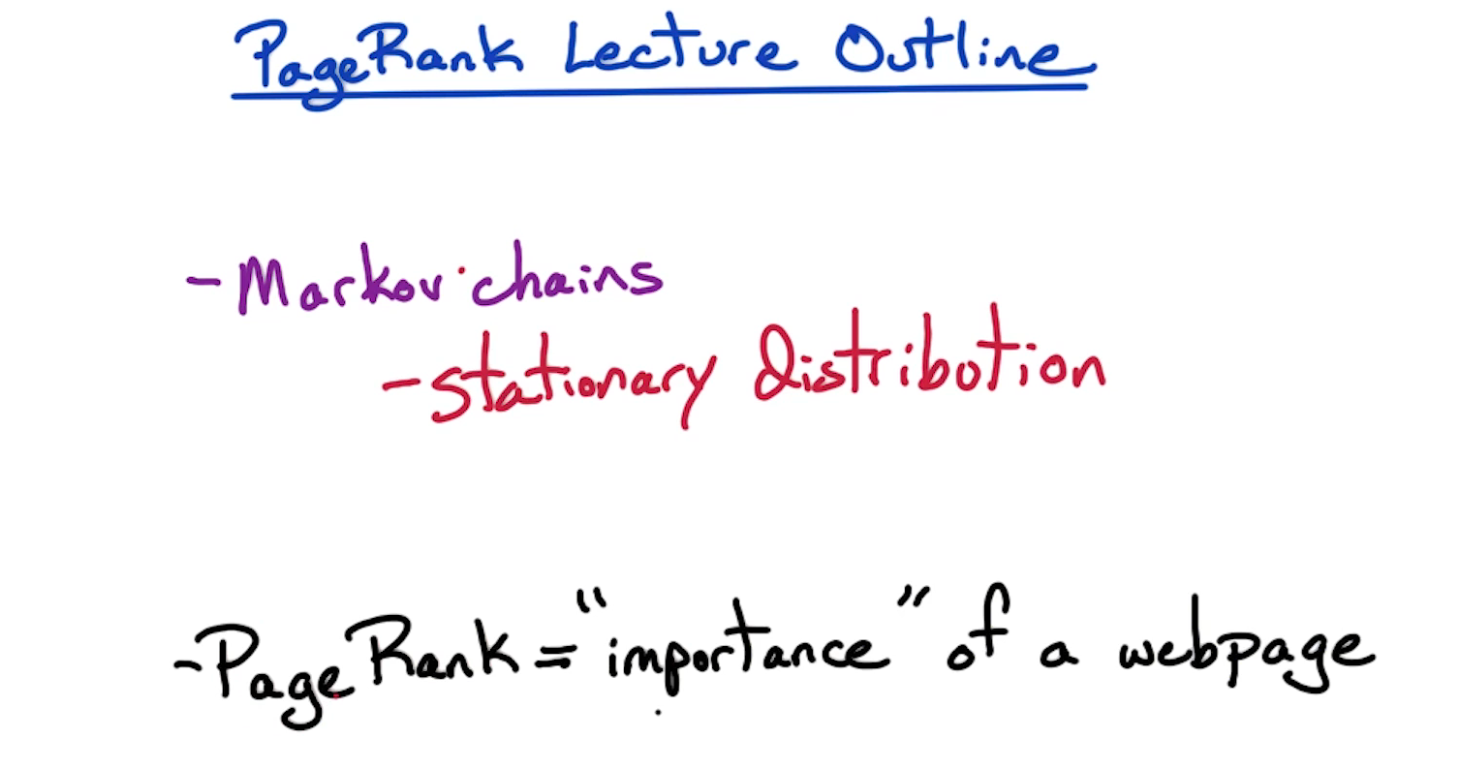 PageRank Lecture Outline
- Markov chains
- stationary distribution
- PageRank = "importance" of a webpage